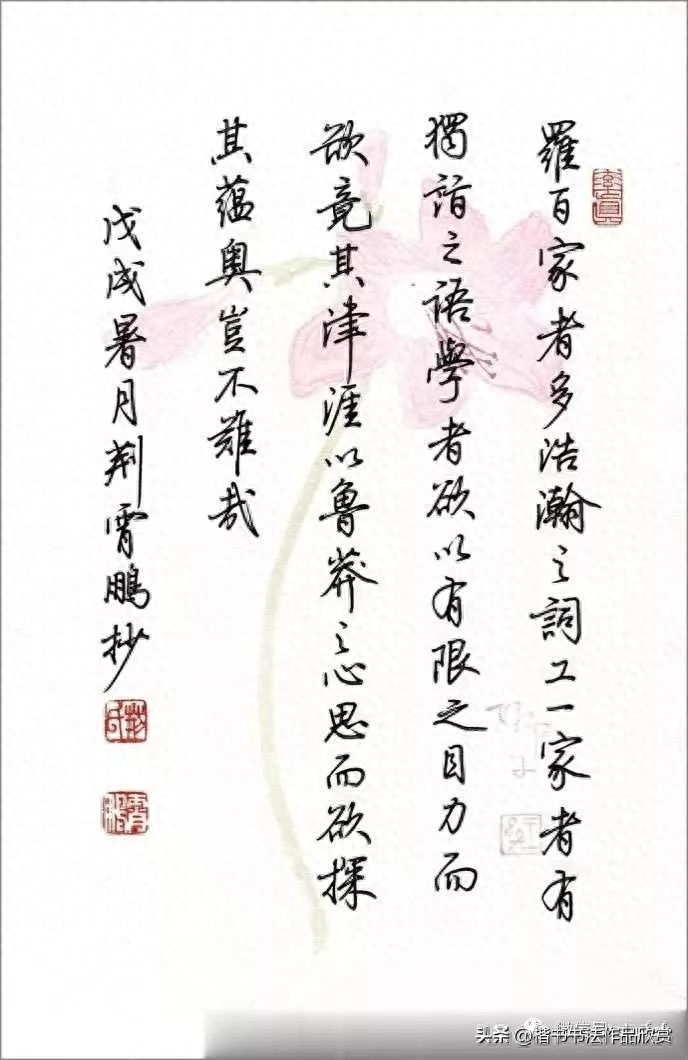 羅百家者多浩瀚之詞工一家者有
獨詣之語學者欲以有限之目力而
欲竟其津涯以魯莽之心思而欲探
其蘊奧豈不難哉
戊戌暑月荆霄鵬抄
头条@楷书书法作品欣赏